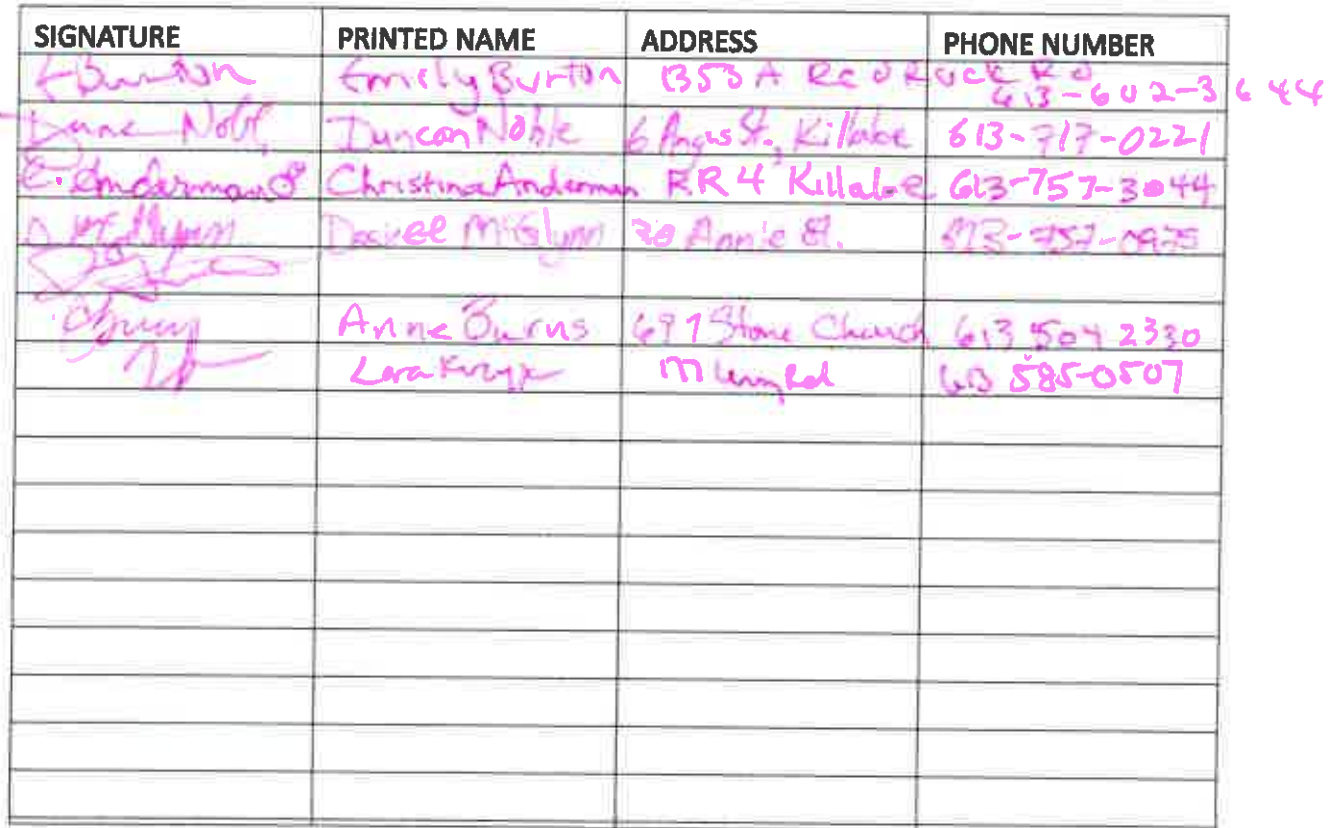 SIGNATURE PRINTED NAME ADDRESS PHONE NUMBER
EBurton Emily Burton 1353 A Red Rock Rd 613-602-3644
Noble Duncan Noble 6 Angus St., Killaloe 613-717-0221
C. Anderman Christina Anderman RR4 Killaloe 613-757-3044
D McGlynn Desiree McGlynn 30 Annie St. 613-757-0975
Anne Burns 697 Stone Church 613 504 2330
Lara Rd 613 585-0507